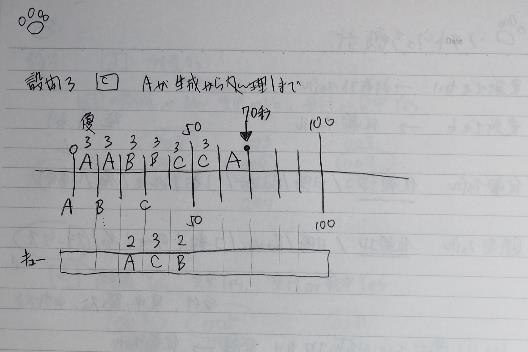 設問3 C Aが生成から処理まで
優 70秒
3 3 3 3 3 50 3 100
A A B B C C A
A B C 50 100
2 3 2
キュー A C B